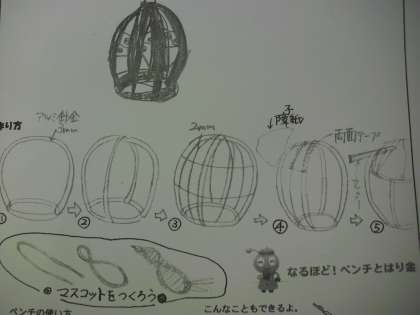 作り方
アルミ針金
3mm
2mm
障子紙
両面テープ
①
②
③
④
⑤
マスコットをつくろう
なるほど!ペンチとはり金
ペンチの使い方
こんなこともできるよ。